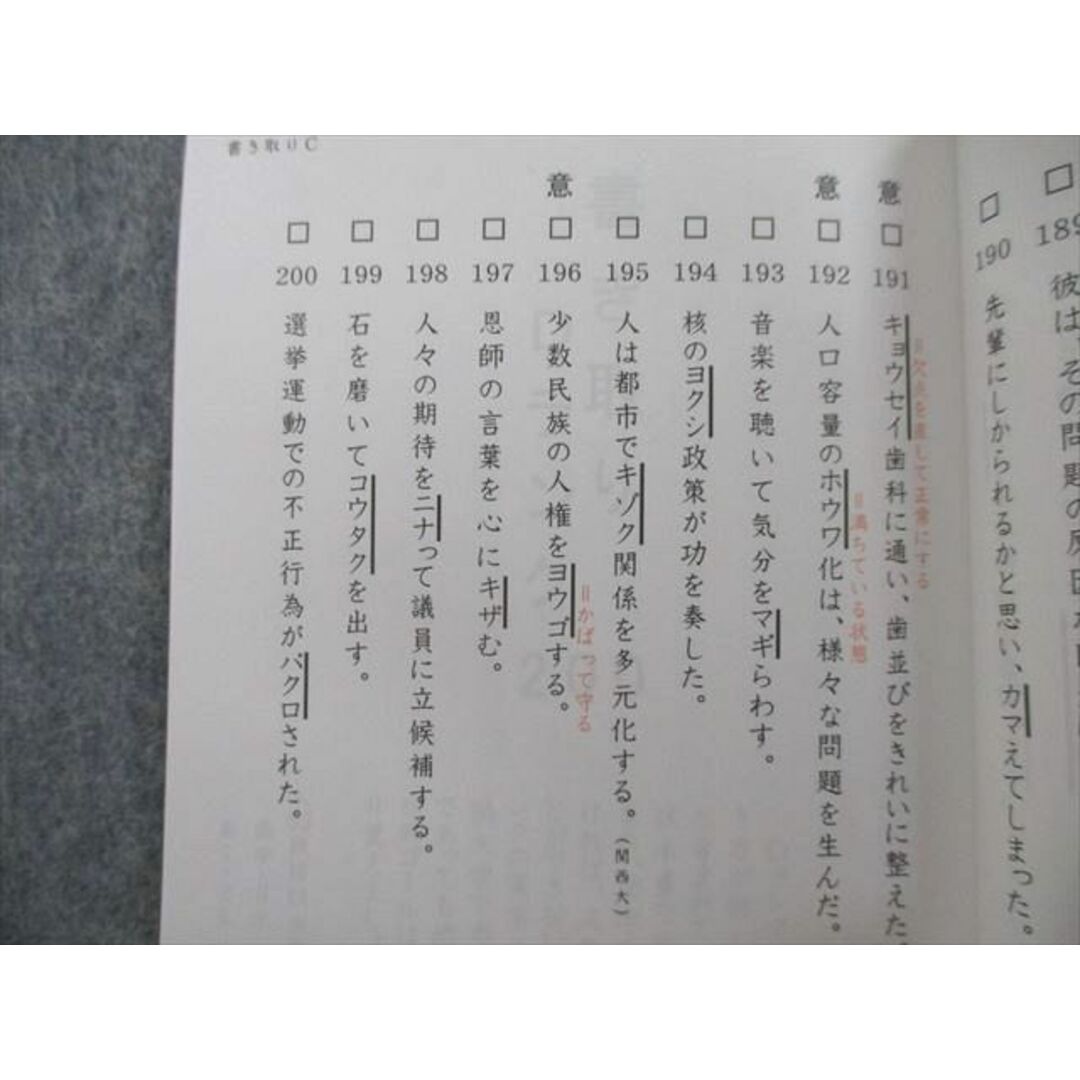 書き取りC
□ 189 彼は、その問題の
□ 190 先輩にしかられるかと思い、カマえてしまった。
意 □ 191 キョウセイ歯科に通い、歯並びをきれいに整えた。
=欠点を直して正常にする
意 □ 192 人口容量のホウワ化は、様々な問題を生んだ。
=満ちている状態
□ 193 音楽を聴いて気分をマギらわす。
□ 194 核のヨクシ政策が功を奏した。
□ 195 人は都市でキゾク関係を多元化する。(関西大)
意 □ 196 少数民族の人権をヨウゴする。
=かばって守る
□ 197 恩師の言葉を心にキザむ。
□ 198 人々の期待をニナって議員に立候補する。
□ 199 石を磨いてコウタクを出す。
□ 200 選挙運動での不正行為がバクロされた。